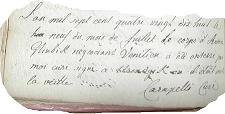 L'an mil sept cent quatre vingt dix huit le
neuf du mois de juillet le corps d'Andre
négociant Vénitien a été enterré par
moi curé signé à décédé
la veille
Carapelli Curé